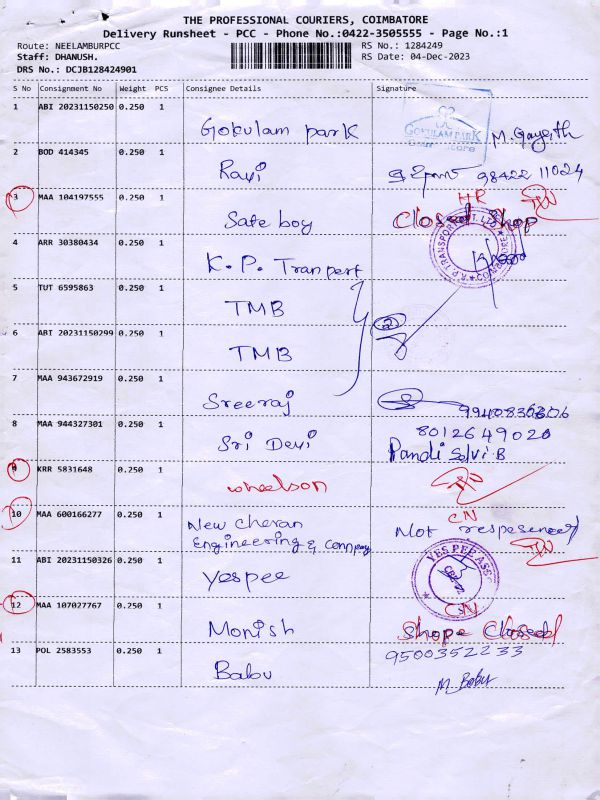 THE PROFESSIONAL COURIERS, COIMBATORE
Delivery Runsheet - PCC - Phone No.:0422-3505555 - Page No.:1
Route: NEELAMBURPCC RS No.: 1284249
Staff: DHANUSH. RS Date: 04-Dec-2023
DRS No.: DCJB128424901
S No Consignment No Weight PCS Consignee Details Signature
1 ABI 20231150250 0.250 1 Gokulam park GOKULAM PARK M. Gayath
2 BOD 414345 0.250 1 Ravi 98422 11024
3 MAA 104197555 0.250 1 Safe boy HR Closed Shop
4 ARR 30380434 0.250 1 K. P. Tranpert
5 TUT 6595863 0.250 1 TMB
6 ABI 20231150299 0.250 1 TMB 2
7 MAA 943672919 0.250 1 Sreeraj
8 MAA 944327301 0.250 1 Sri Devi 8012649020
Pandi Selvi.B
9 KRR 5831648 0.250 1 wheelson
10 MAA 600166277 0.250 1 New cheran
Engineering & Conmpany CN Not
11 ABI 20231150326 0.250 1 Yespee YES PEE
12 MAA 107027767 0.250 1 Monish CN Shope Closed
13 POL 2583553 0.250 1 Babu 9500352233
M. Babu